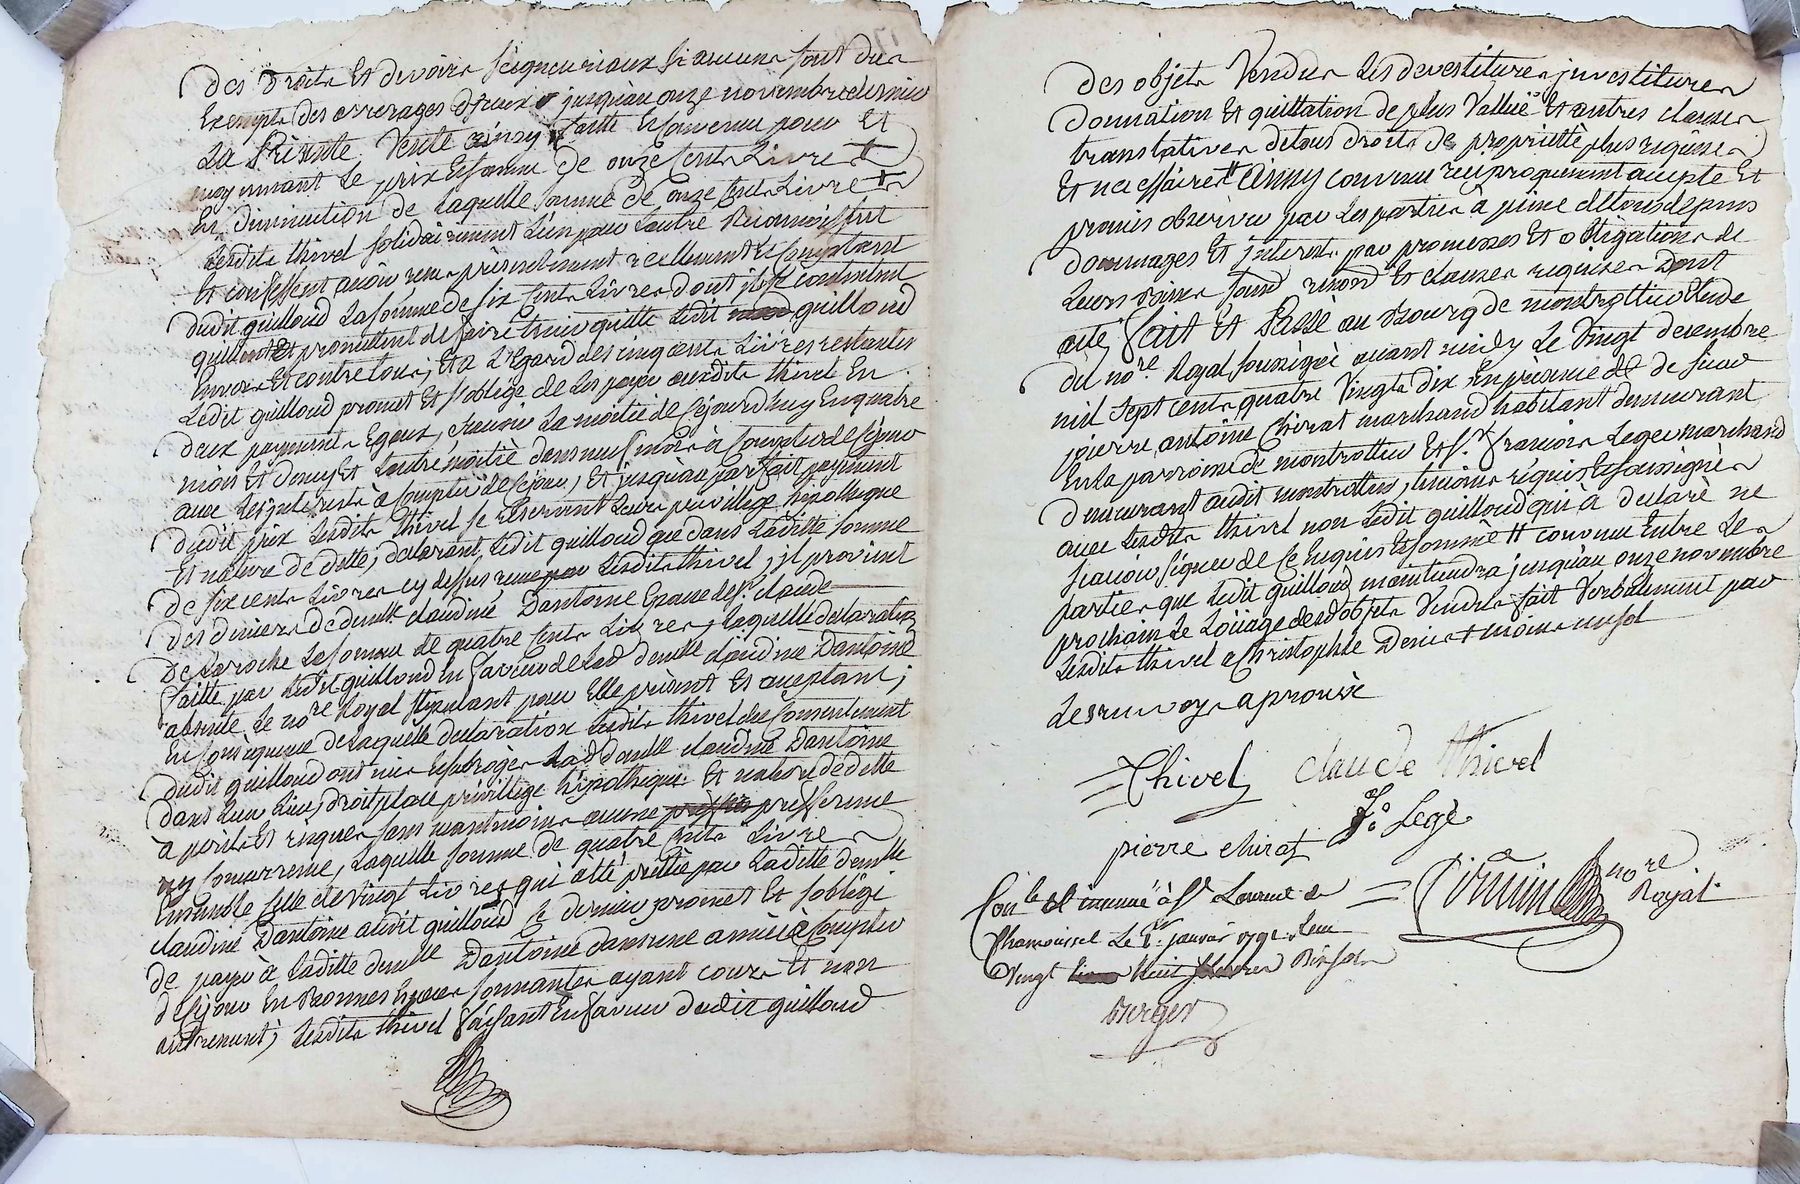 Des Droits Et devoirs seigneuriaux si aucuns sont dus
Exempts des arrerages d'iceux jusquau onze novembre dernier
La Présente Vente ainsy faitte Et convenue pour Et
moyennant Le prix Et somme De onze Cents Livres
En Diminuction De Laquelle somme de onze Cents Livres
Lesdits thivel solidairement L'un pour L'autre Reconnoissent
Et confessent avoir reçu présentement reellement Et Comptant
dudit guilloud La somme de six Cents Livres dont ils se contentent
quittent Et promettent de faire tenir quitte Ledit guilloud
Envers Et contre tous, Et a L'Egard des cinq cents Livres restantes
Ledit guilloud promet Et s'oblige de Les payer auxdits thivel En
deux payements Egaux, sçavoir La moitié de Cejourd'huy En quatre
mois Et demy Et L'autre moitié dans neuf mois à Compter de Cejour
avec Les Interests à Compter de Cejour, Et jusqu'au parfait payement
dudit prix Lesdits thivel se reservant Leur privillege hipotheque
Et nature de dette, declarant Ledit guilloud que dans Laditte somme
De six cents Livres cy dessus reçue par Lesdits thivel, il provient
des deniers de demlle claudine Dantoine Epouse de sr claude
De Laroche La somme de quatre Cents Livres, Laquelle declaration
faitte par Ledit guilloud En faveur de Lad demlle claudine Dantoine
absente Le nore Royal stipulant pour Elle présent Et aceptant;
En Conséquence de Laquelle declaration Lesdits thivel du Consentement
dudit guilloud ont mis Et subrogés Lad demlle claudine Dantoine
Dans Leur Lieu, droit place privillege hipotheque Et nature de dette
à perils Et risques sans neantmoins aucune prefference
ny Concurrence, Laquelle somme de quatre Cents Livres
Ensemble Celle de vingt Livres qui a été prettée par Laditte demlle
claudine Dantoine audit guilloud Ce dernier promet Et s'oblige
de payer à Laditte demlle Dantoine dans une année à Compter
de Cejour En Bonnes Espèces sonnantes ayant cours Et non
autrement, Lesdits thivel faisant En faveur dudit guilloud
des objets Vendus Les devestitures investitures
Donnation Et quittation de plus Vallue Et autres clauses
translatives de tous droits de propriétté plus requises
Et necessaires ainsy convenu reciproquement acepté Et
promis observer par Les parties à peine de tous depens
dommages Et Interests par promesses Et obligations de
Leurs Biens soumd renond Et clauses requises Dont
acte, fait Et Passé au Bourg de montrottier Etude
du nore. Royal soussigné avant midy Le Vingt decembre
mil sept cents quatre Vingts dix En présence de de sieur
pierre antoine Chirat marchand habitant demeurant
En La parroisse de montrottier Et sr. françois Legé marchand
demeurant audit montrottier, temoins requis Et soussignés
avec Lesdits thivel non Ledit guilloud qui à declaré ne
sçavoir signer de Ce Enquis Et sommé convenu Entre Les
parties que Ledit guilloud maintiendra jusqu'au onze novembre
prochain Le Loüage desd objets Vendus fait Verbalement par
Lesdits thivel a Christophle Denis
Les renvoys aprouvé
Thivel claude thivel
fs. Legé
pierre chirat
nore
Royal
Conlé Et insinué à St Laurent de
Chamousset Le 1er. janvier 1791. Reçu
Vingt huit livres Dix sols
Berger